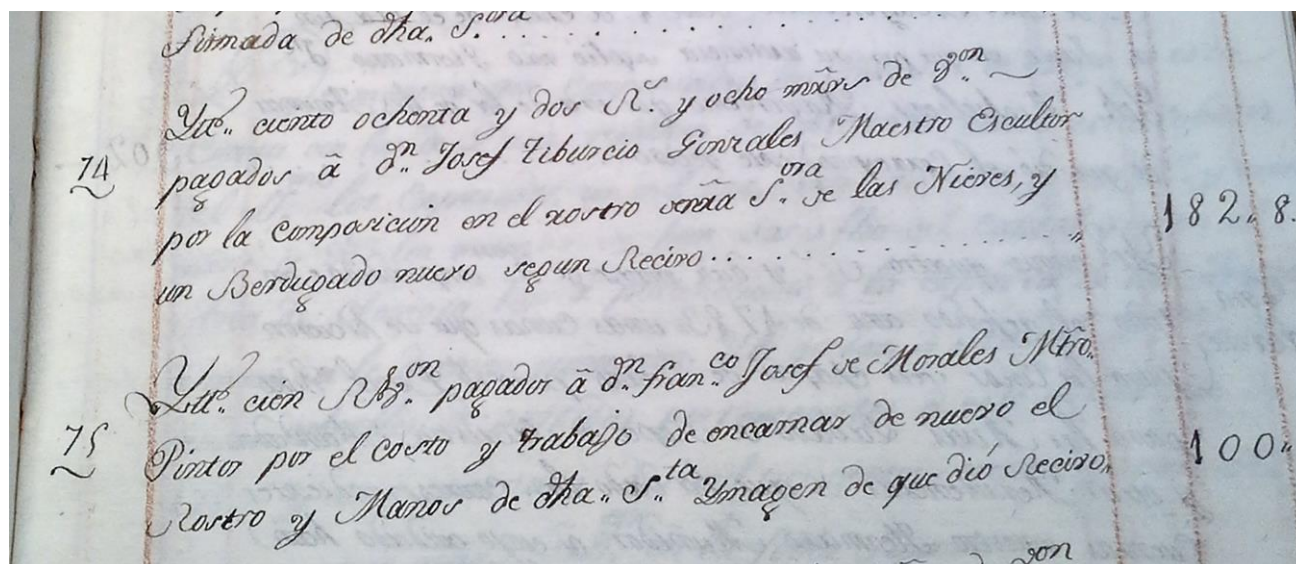 firmada de dha. S.ora
Ytt.. ciento ochenta y dos R.s y ocho mrãvs de v.on
74 pagados â d.n Josef Tiburcio Gonzales Maestro Escultor
por la composicion en el rostro venrãa S.ora de las Nieves, y 182.. 8.
un Berdugado nuevo segun Recivo
Ytt.. cien R.s v.on pagados â d.n Fran.co Josef de Morales Mtrõ.
75 Pintor por el costo y trabajo de encarnar de nuevo el 100..
Rostro y Manos de dha.. S.ta Ymagen de que dió Recivo.
von